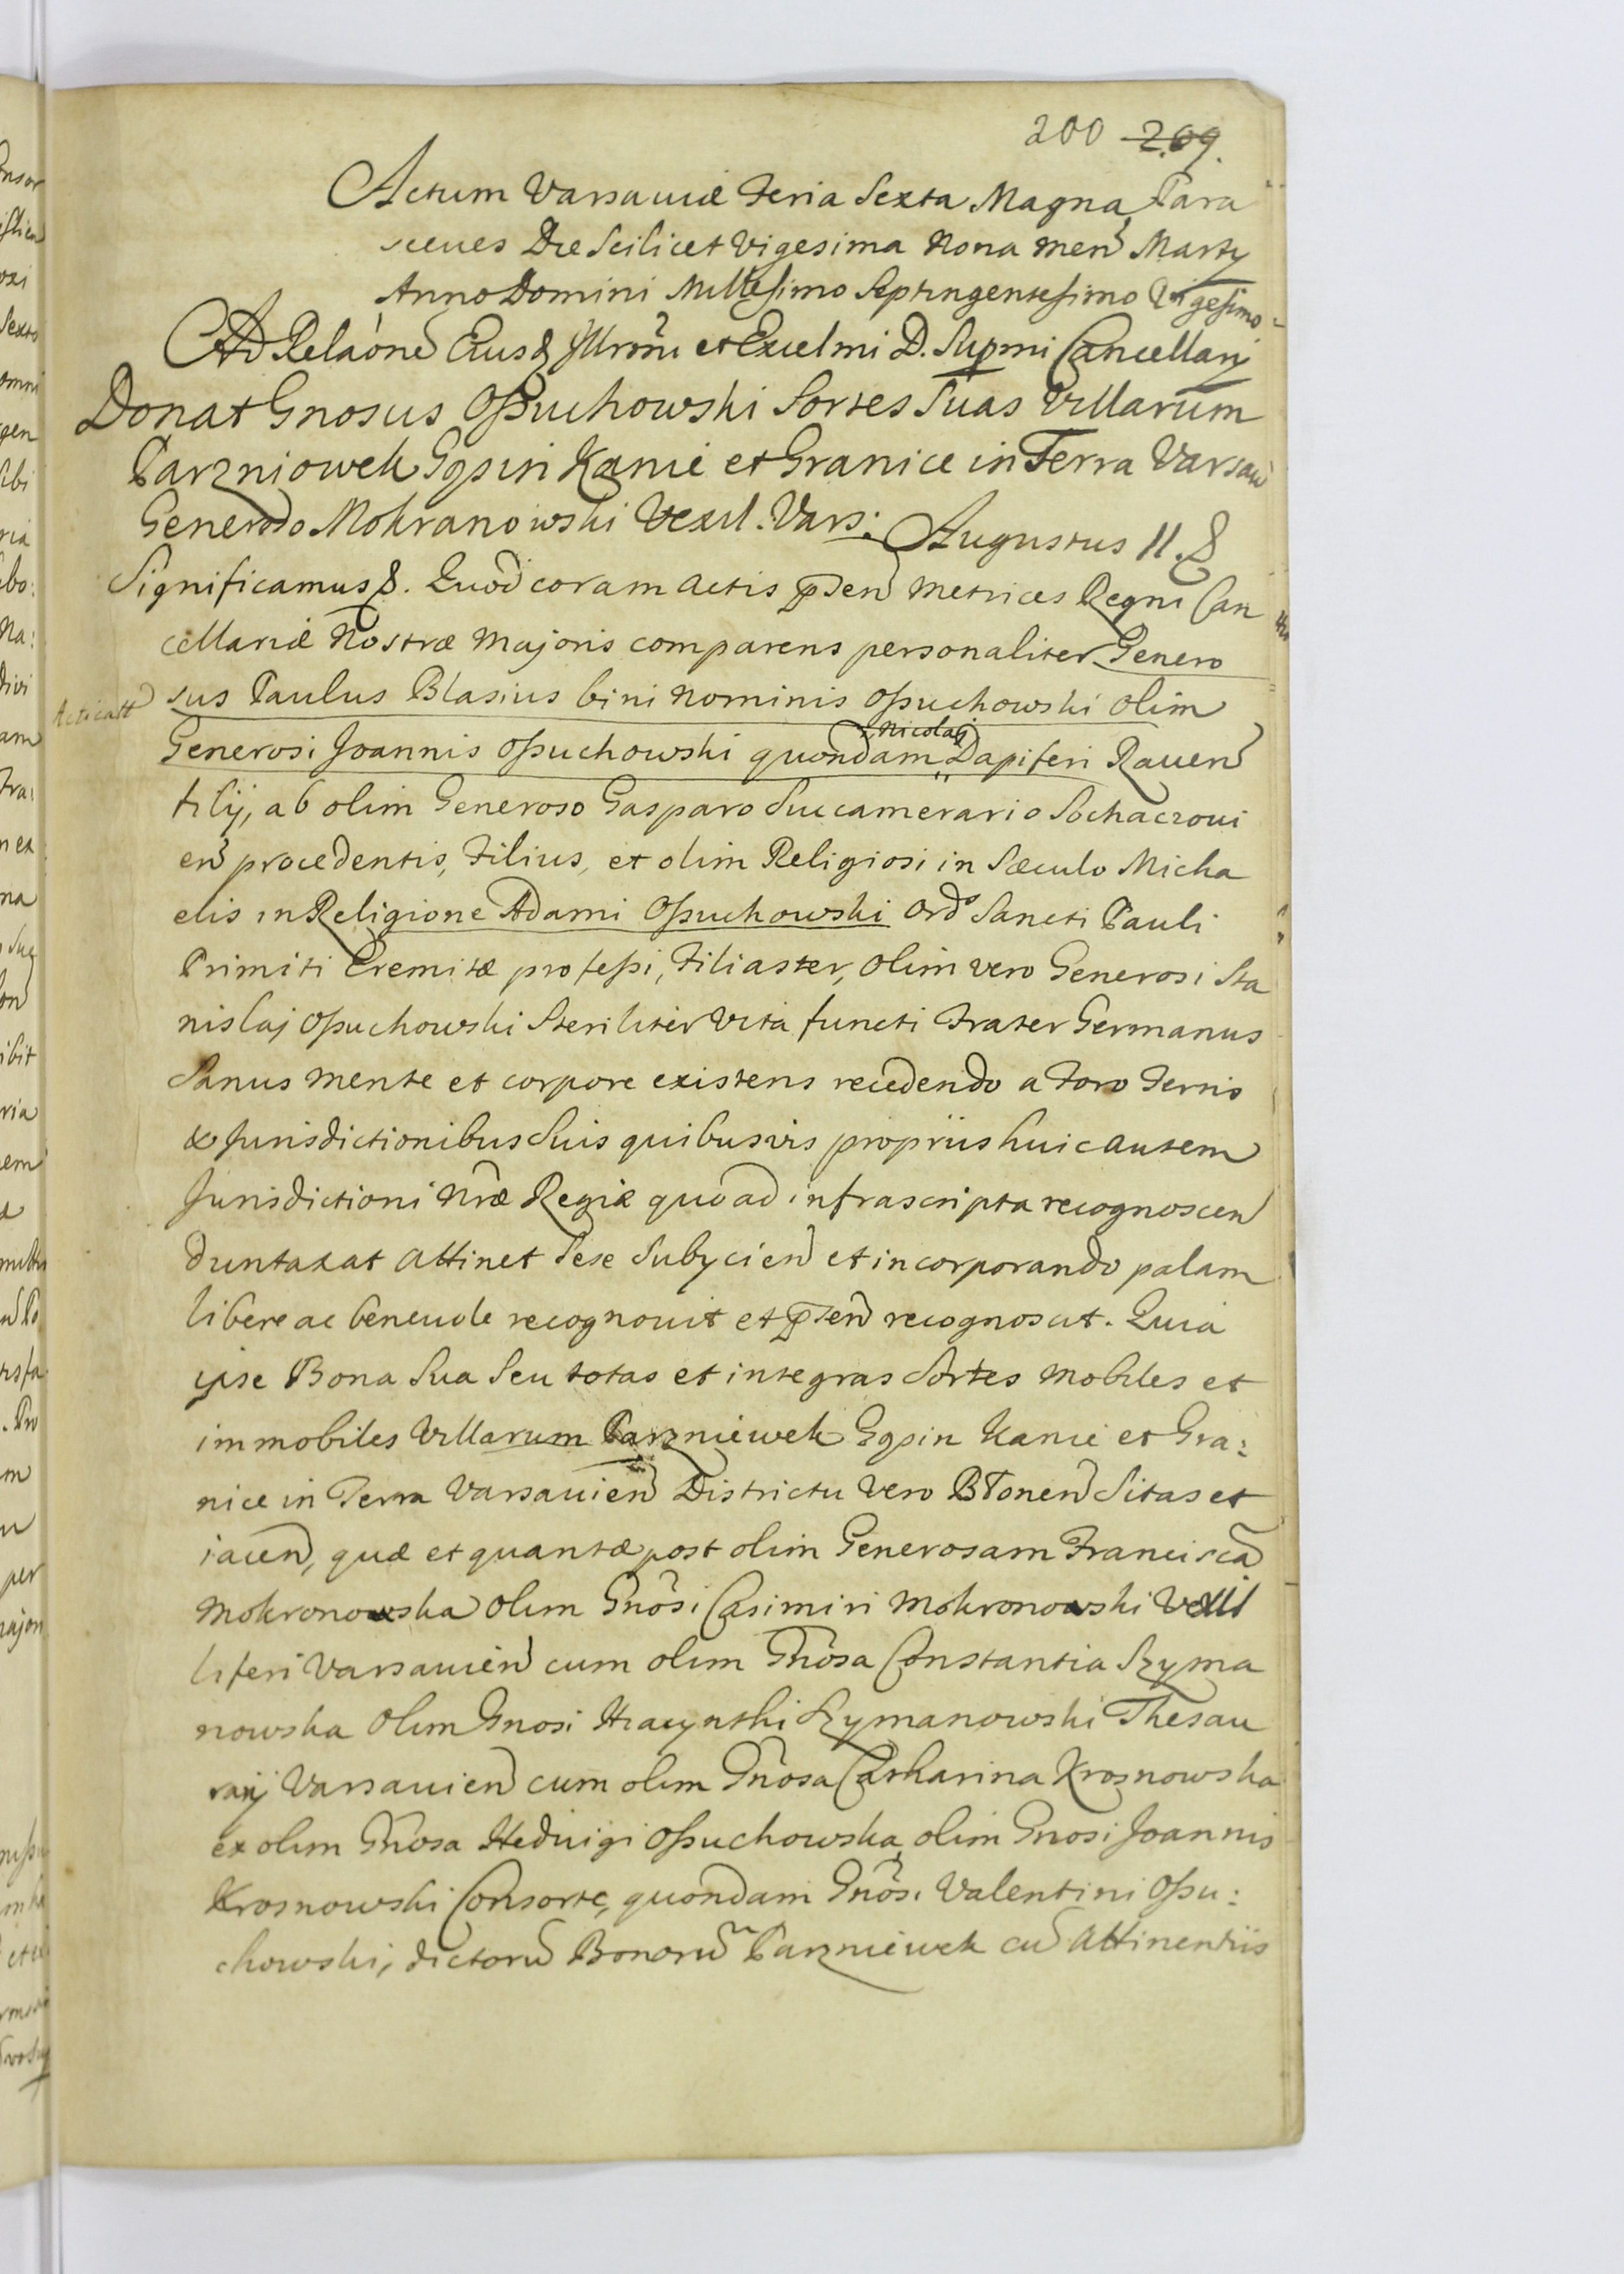 200 209.
Actum Varsaviæ Feria Sexta Magna Para
sceues Die Scilicet Vigesima Nona men Martÿ
Anno Domini Millesimo Septingentesimo Vigesimo
Ad Relaõne Eiusd Illrmi et Excelmi D. Supmi Cancellarÿ
Donat Gnosus Ossuchowski Sortes Suas Villarum
Parzniowek Gąsin Kanie et Granice in Terra Varsav
Generoso Mokranowski Vexil. Vars:
Augustus II. &
Significamus &. Quod coram Actis pñden Metrices Regni Can
cellariæ Nostræ Majoris comparens personaliter Genero
Acticatt sus Paulus Blasius bini Nominis Ossuchowski olim
Nicolaj
Generosi Joannis Ossuchowski quondam Dapiferi Raven
filÿ, ab olim Generoso Gasparo Succamerario Sochaczoui
en procedentis, Filius, et olim Religiosi in Sæculo Micha
elis in Religione Adami Ossuchowski Ord Sancti Pauli
Primiti Eremitæ professi, Filiaster, olim vero Generosi Sta
nislaj Ossuchowski Steriliter Vita functi Frater Germanus
Sanus mente et corpore existens recedendo a Foro Terris
& Jurisdictionibus Suis quibusvis propriis huic autem
Jurisdictioni Nræ Regiæ quoad infrascripta recognoscen
duntaxat attinet Sese Subÿcien et incorporando palam
libere ac beneuole recognouit et pñten recognoscit. Quia
ipse Bona Sua Seu totas et integras Sortes mobiles et
immobiles Villarum Parzniewek Gąsin Kanie et Gra:
nice in Terra Varsauien Districtu Vero Błonen Sitas et
iacen, quæ et quantæ post olim Generosam Franciscã
Mokronowska olim Gnosi Casimiri Mokronowski Vexil
liferi Varsauien cum olim Gnosa Constantia Szyma
nowska olim Gnosi Hiacynthi Szymanowski Thesau
rarÿ Varsauien cum olim Gnosa Catharina Krosnowska
ex olim Gnosa Hedvigi Ossuchowska, olim Gnosi Joannis
Krosnowski Consorte, quondam Gnosi Valentini Ossu:
chowski, dictorũ Bonorũ Parzniewek cũ Attinentiis